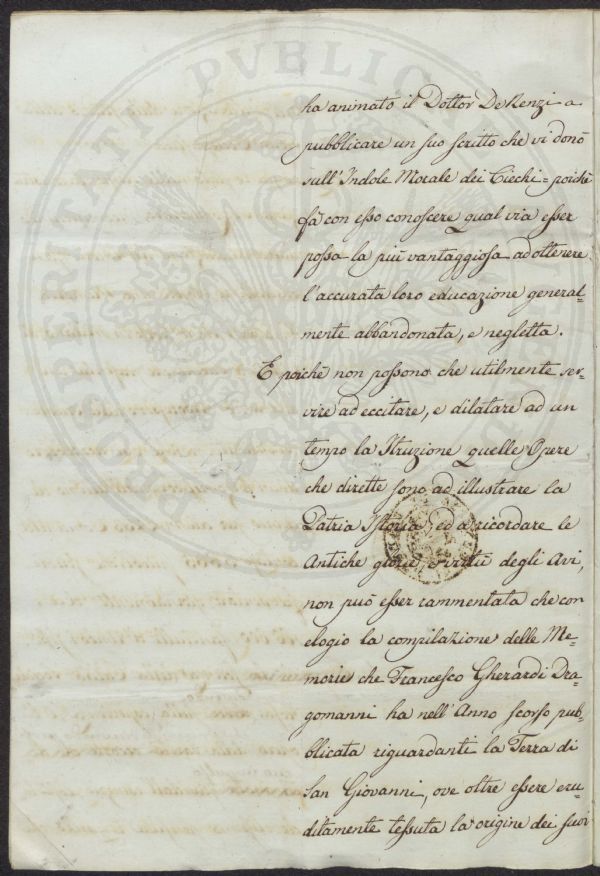 ha animato il Dottor De Renzi a
pubblicare un suo scritto che vi donò
sull'Indole Morale dei Ciechi = poichè
fà con esso conoscere qual via esser
possa la piu vantaggiosa ad ottenere
l'accurata loro educazione general=
mente abbandonata, e negletta.
E poichè non possono che utilmente ser=
vire ad eccitare, e dilatare ad un
tempo la Istruzione quelle Opere
che dirette sono ad illustrare la
Patria Istoria, ed a ricordare le
Antiche e virtù degli Avi,
non può esser rammentata che con
elogio la compilazione delle Me=
morie che Francesco Gherardi Dra=
gomanni ha nell'Anno scorso pub=
blicata riguardanti la Terra di
San Giovanni, ove oltre essere eru=
ditamente tessuta la origine dei suoi
PROSPERITATI PUBLICAE